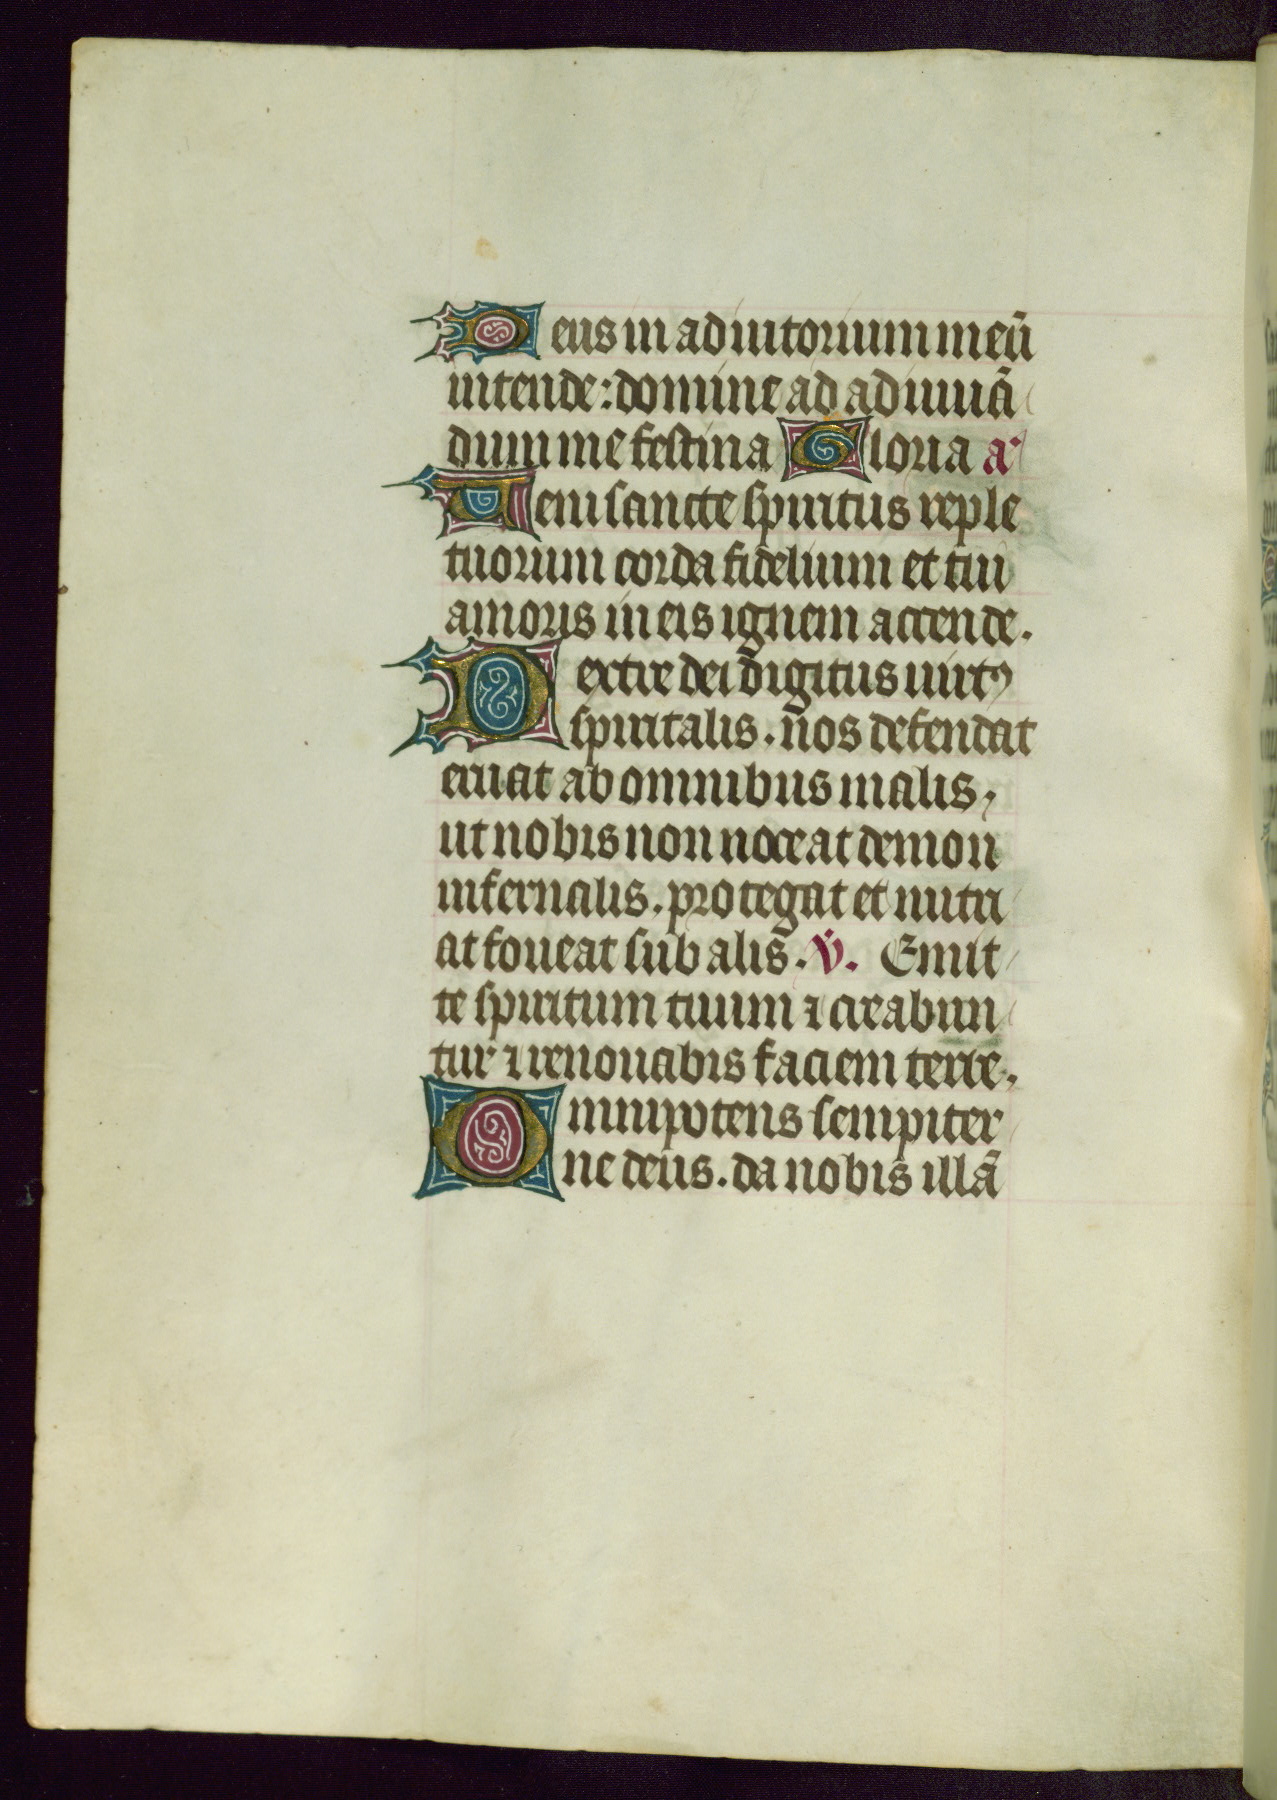 Deus in adiutorium meū
intende: domine ad adiuuā
dum me festina Gloria a᷒
Ueni sancte spiritus reple
tuorum corda fidelium et tui
amoris in eis ignem accende.
Dextre dei digitus uirtꝰ
spiritalis. nos defendat
eruat ab omnibus malis,
ut nobis non noceat demon
infernalis. protegat et nutri
at foueat sub alis. V. Emit
te spiritum tuum ⁊ creabun
tur ⁊ renouabis faciem terre.
Omnipotens sempiter
ne deus. da nobis illā